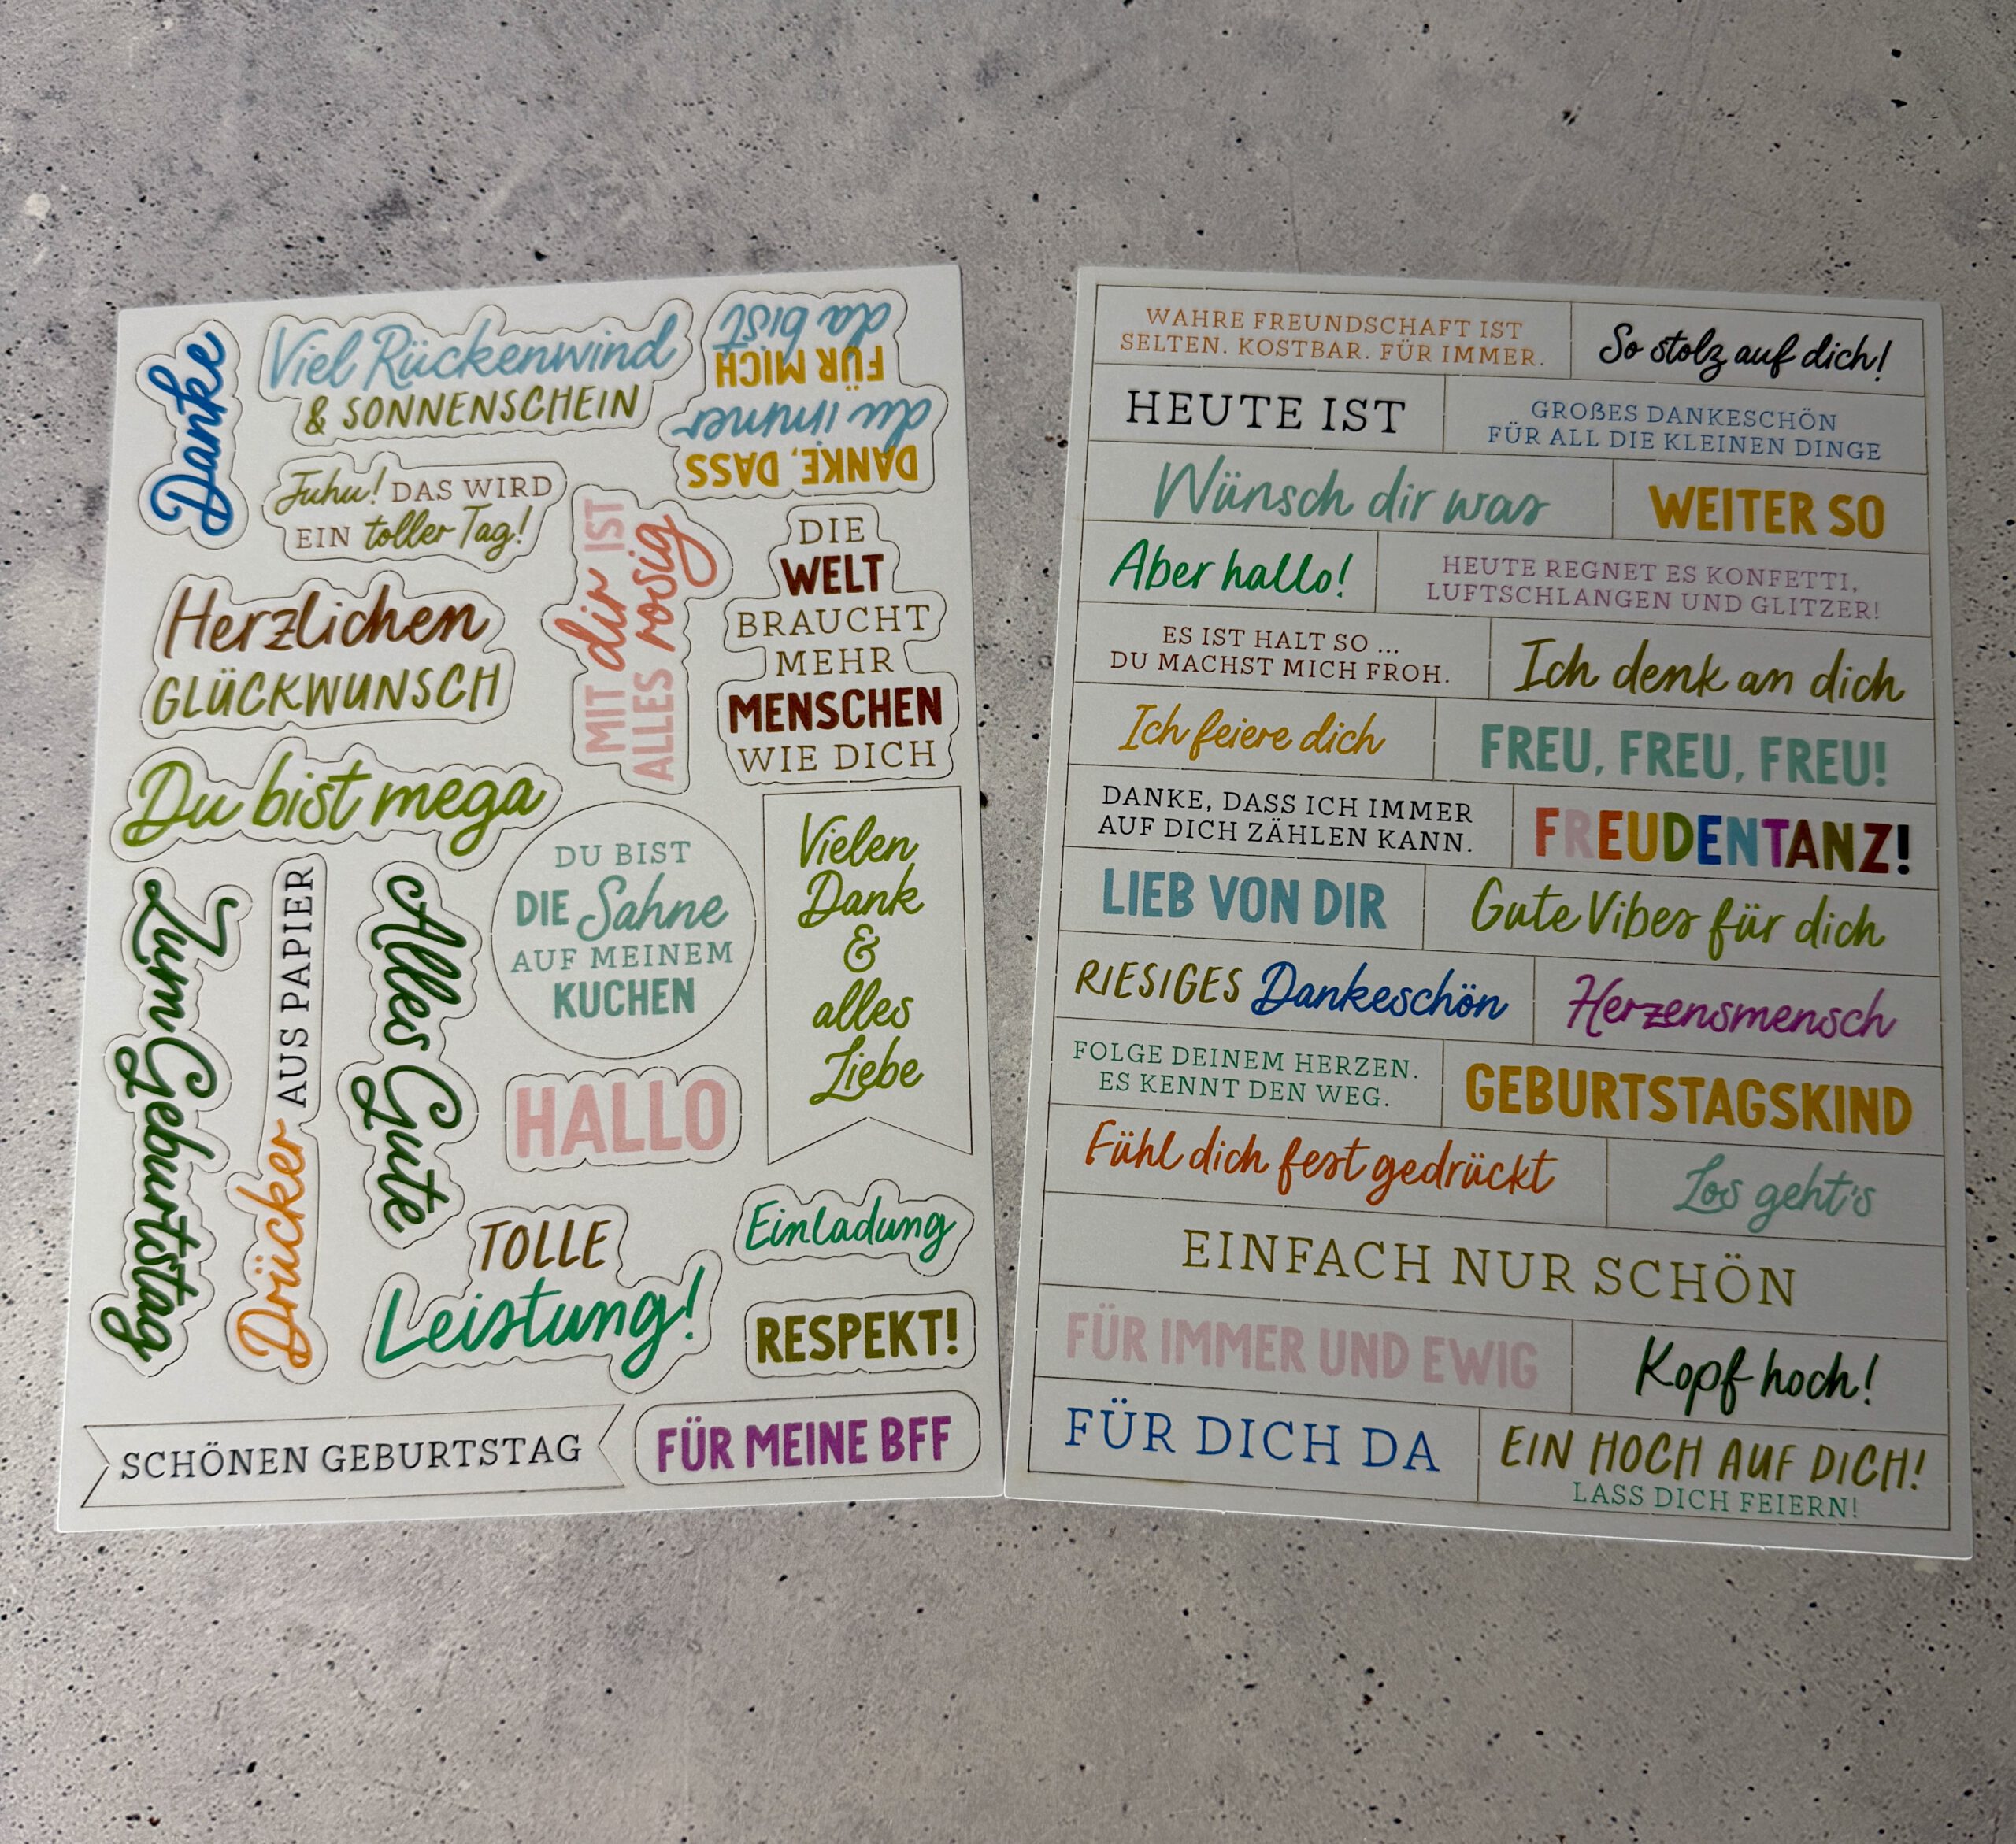 Danke
Viel Rückenwind
& SONNENSCHEIN
DANKE, DASS
du immer
FÜR MICH
da bist
Juhu! DAS WIRD
EIN toller Tag!
MIT dir IST
ALLES rosig
DIE
WELT
BRAUCHT
MEHR
MENSCHEN
WIE DICH
Herzlichen
GLÜCKWUNSCH
Du bist mega
DU BIST
DIE Sahne
AUF MEINEM
KUCHEN
Vielen
Dank
&
alles
Liebe
Zum Geburtstag
Drücker AUS PAPIER
Alles Gute
HALLO
Einladung
TOLLE
Leistung!
RESPEKT!
SCHÖNEN GEBURTSTAG
FÜR MEINE BFF
WAHRE FREUNDSCHAFT IST
SELTEN. KOSTBAR. FÜR IMMER.
So stolz auf dich!
HEUTE IST
GROßES DANKESCHÖN
FÜR ALL DIE KLEINEN DINGE
Wünsch dir was
WEITER SO
Aber hallo!
HEUTE REGNET ES KONFETTI,
LUFTSCHLANGEN UND GLITZER!
ES IST HALT SO ...
DU MACHST MICH FROH.
Ich denk an dich
Ich feiere dich
FREU, FREU, FREU!
DANKE, DASS ICH IMMER
AUF DICH ZÄHLEN KANN.
FREUDENTANZ!
LIEB VON DIR
Gute Vibes für dich
RIESIGES Dankeschön
Herzensmensch
FOLGE DEINEM HERZEN.
ES KENNT DEN WEG.
GEBURTSTAGSKIND
Fühl dich fest gedrückt
Los geht's
EINFACH NUR SCHÖN
FÜR IMMER UND EWIG
Kopf hoch!
FÜR DICH DA
EIN HOCH AUF DICH!
LASS DICH FEIERN!